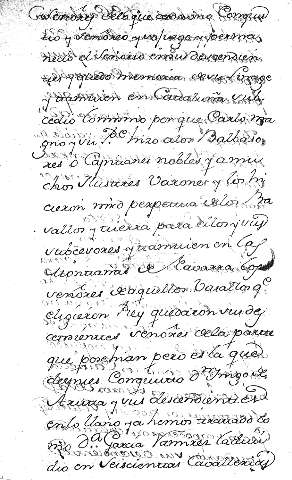 señores de lo que asi como Conquis
tio y Señores y su juzgo y perma
necio el Señorio en sus descendien
tes y quedo memoria de su linage
y tambien en Cataluña sub
cedio lo mismo porque Carlo ma
gno y su hizo a los Balbaso
res o Capitanes nobles y a mu
chos Ilustres Varones y los hi
cieron mrd perpetua de los Ba
sallos y tierra para ellos y sus
subcesores y tambien en las
Montañas de Navarra los
señores de aquellos Vasallos q.e
eligieron Rey quedaron sus de
cendientes señores de la parte
que posehian pero es la que
despues Conquisto D.n Ynigo de
Arista y sus descendientes
en lo llano ya hemos tratado co
mo D.n Garcia Ramirez lo
dio en Seiscientas Cavallerias